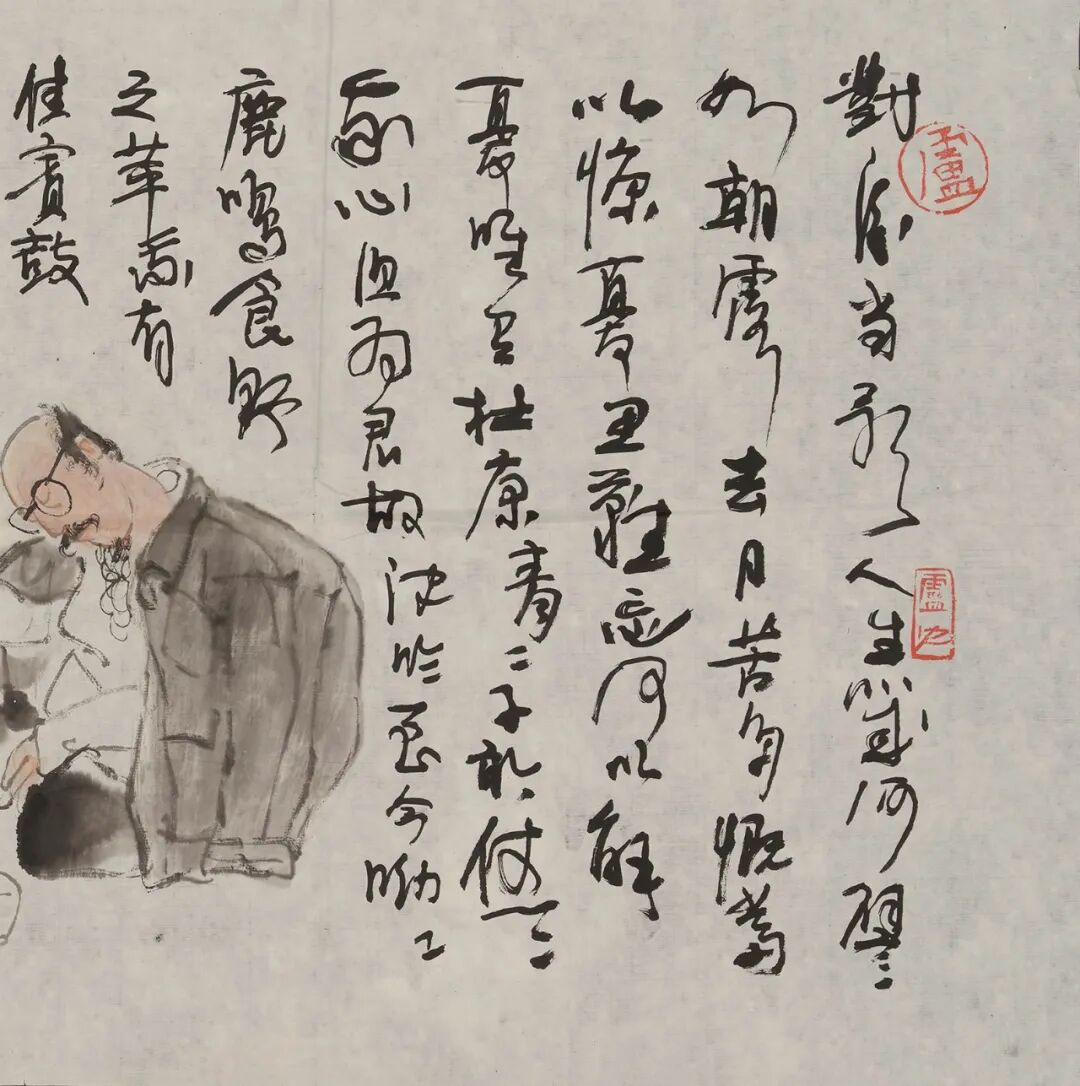 對酒当歌人生幾何譬
如朝露去日苦多慨當
以慷憂思難忘何以解
憂唯有杜康青〻子衿悠〻
我心但为君故沈吟至今呦〻
鹿鳴食野
之苹我有
佳賓鼓
盧